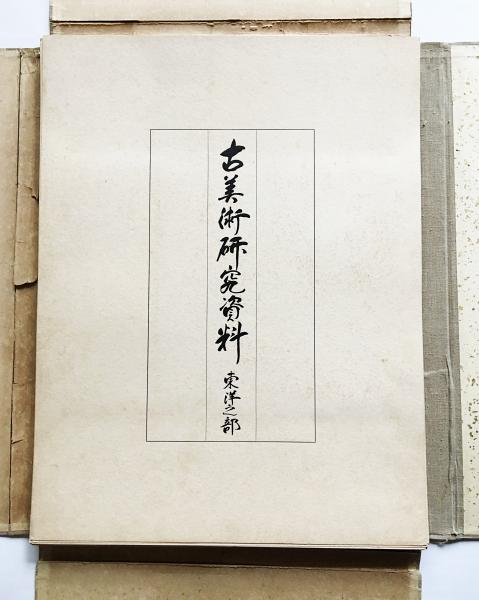 古美術研究資料 東洋之部